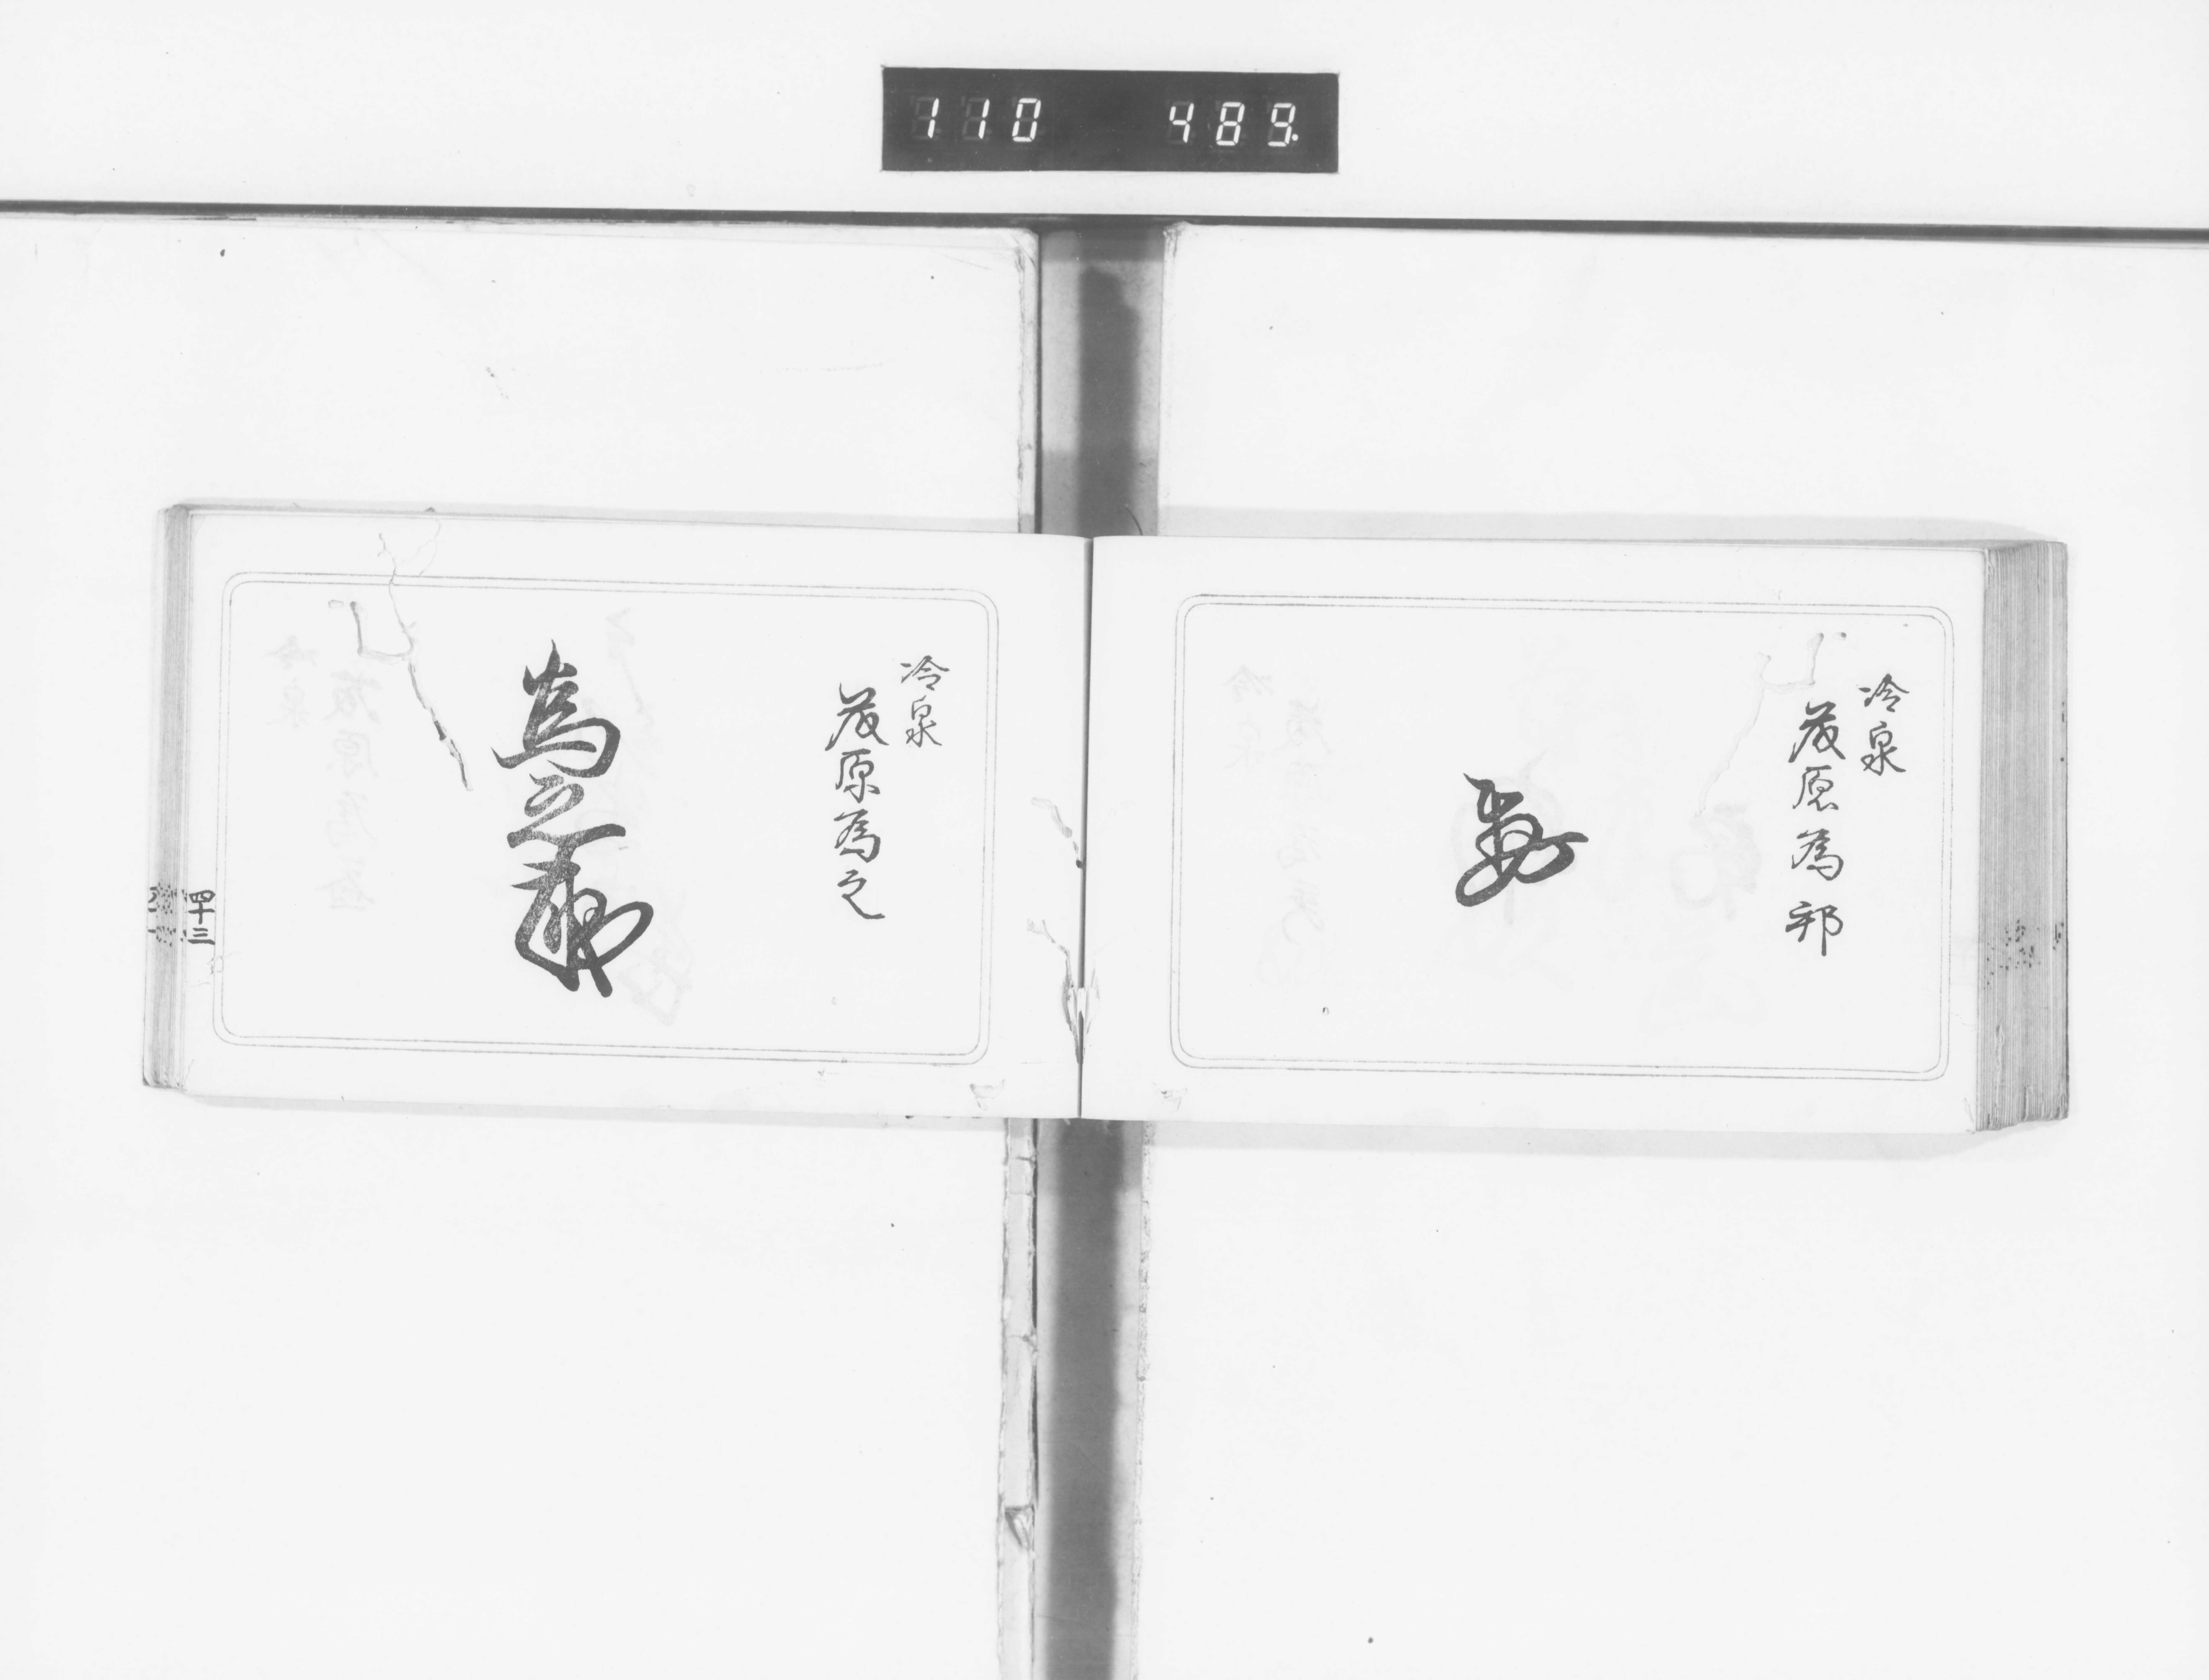 110 489.
冷泉
藤原為邦
冷泉
藤原為之
為之
四十三